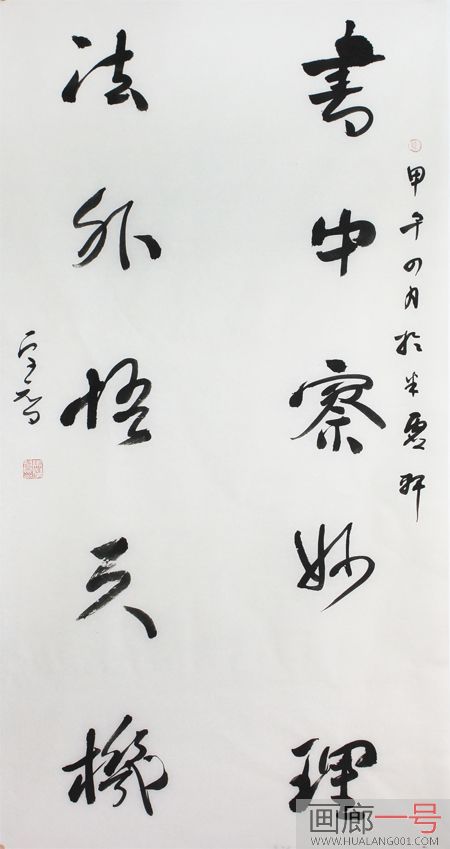 甲午四月於半靈軒
書中察妙理
法外悟天機
画廊一号
WWW.HUALANG001.COM